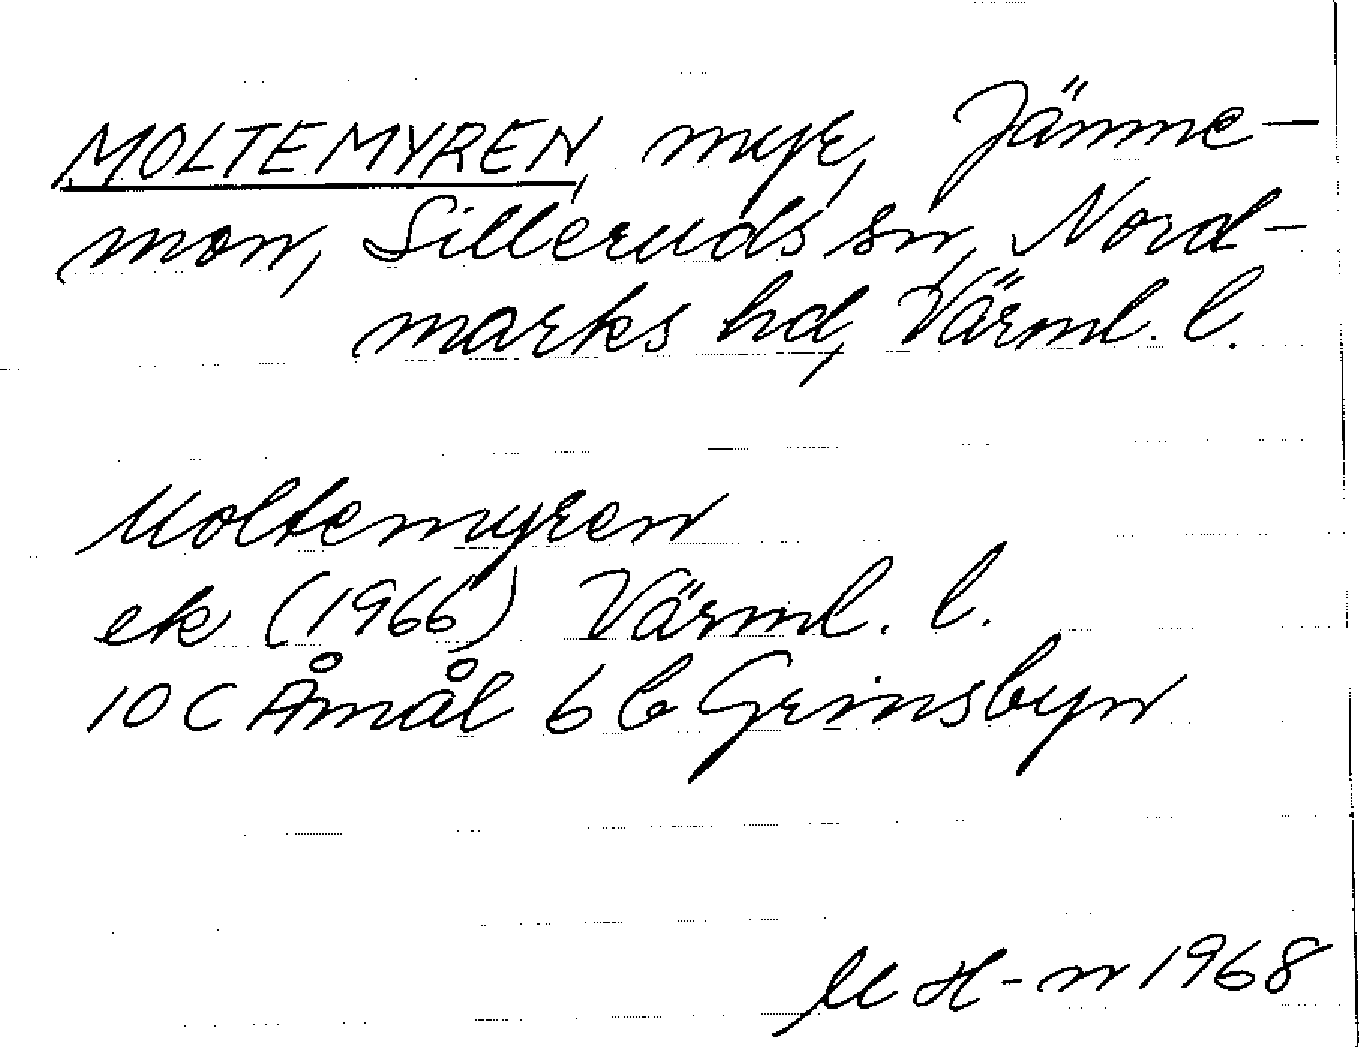 MOLTEMYREN, myr, Jämme-
mon, Silleruds sn, Nord-
marks hd, Värml. l.
Moltemyren
ek (1966) Värml. l.
10 C Åmål 6 b Grinsbyn
M H-n 1968